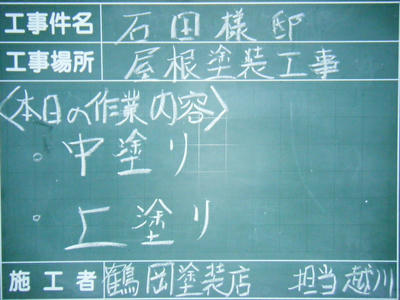 工事件名 石田様邸
工事場所 屋根塗装工事
〈本日の作業内容〉
。中塗り
。上塗り
施工者 鶴岡塗装店 担当越川